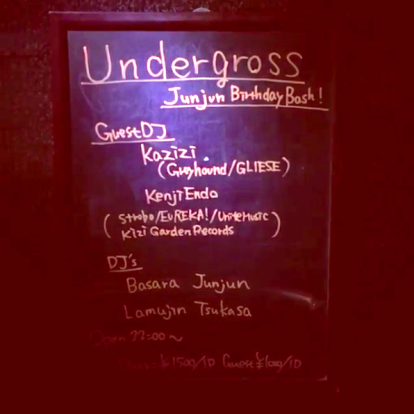 Undergross
Junjun Birthday Bash!
Guest DJ
Kazizi
(Greyhound/GLIESE)
Kenji Endo
(Strobo/EUREKA!/UniteMusic
Kizi Garden Records)
DJ's
Basara Junjun
Lamujin Tsukasa
Open 22:00～
¥1500/1D Guest ¥1000/1D